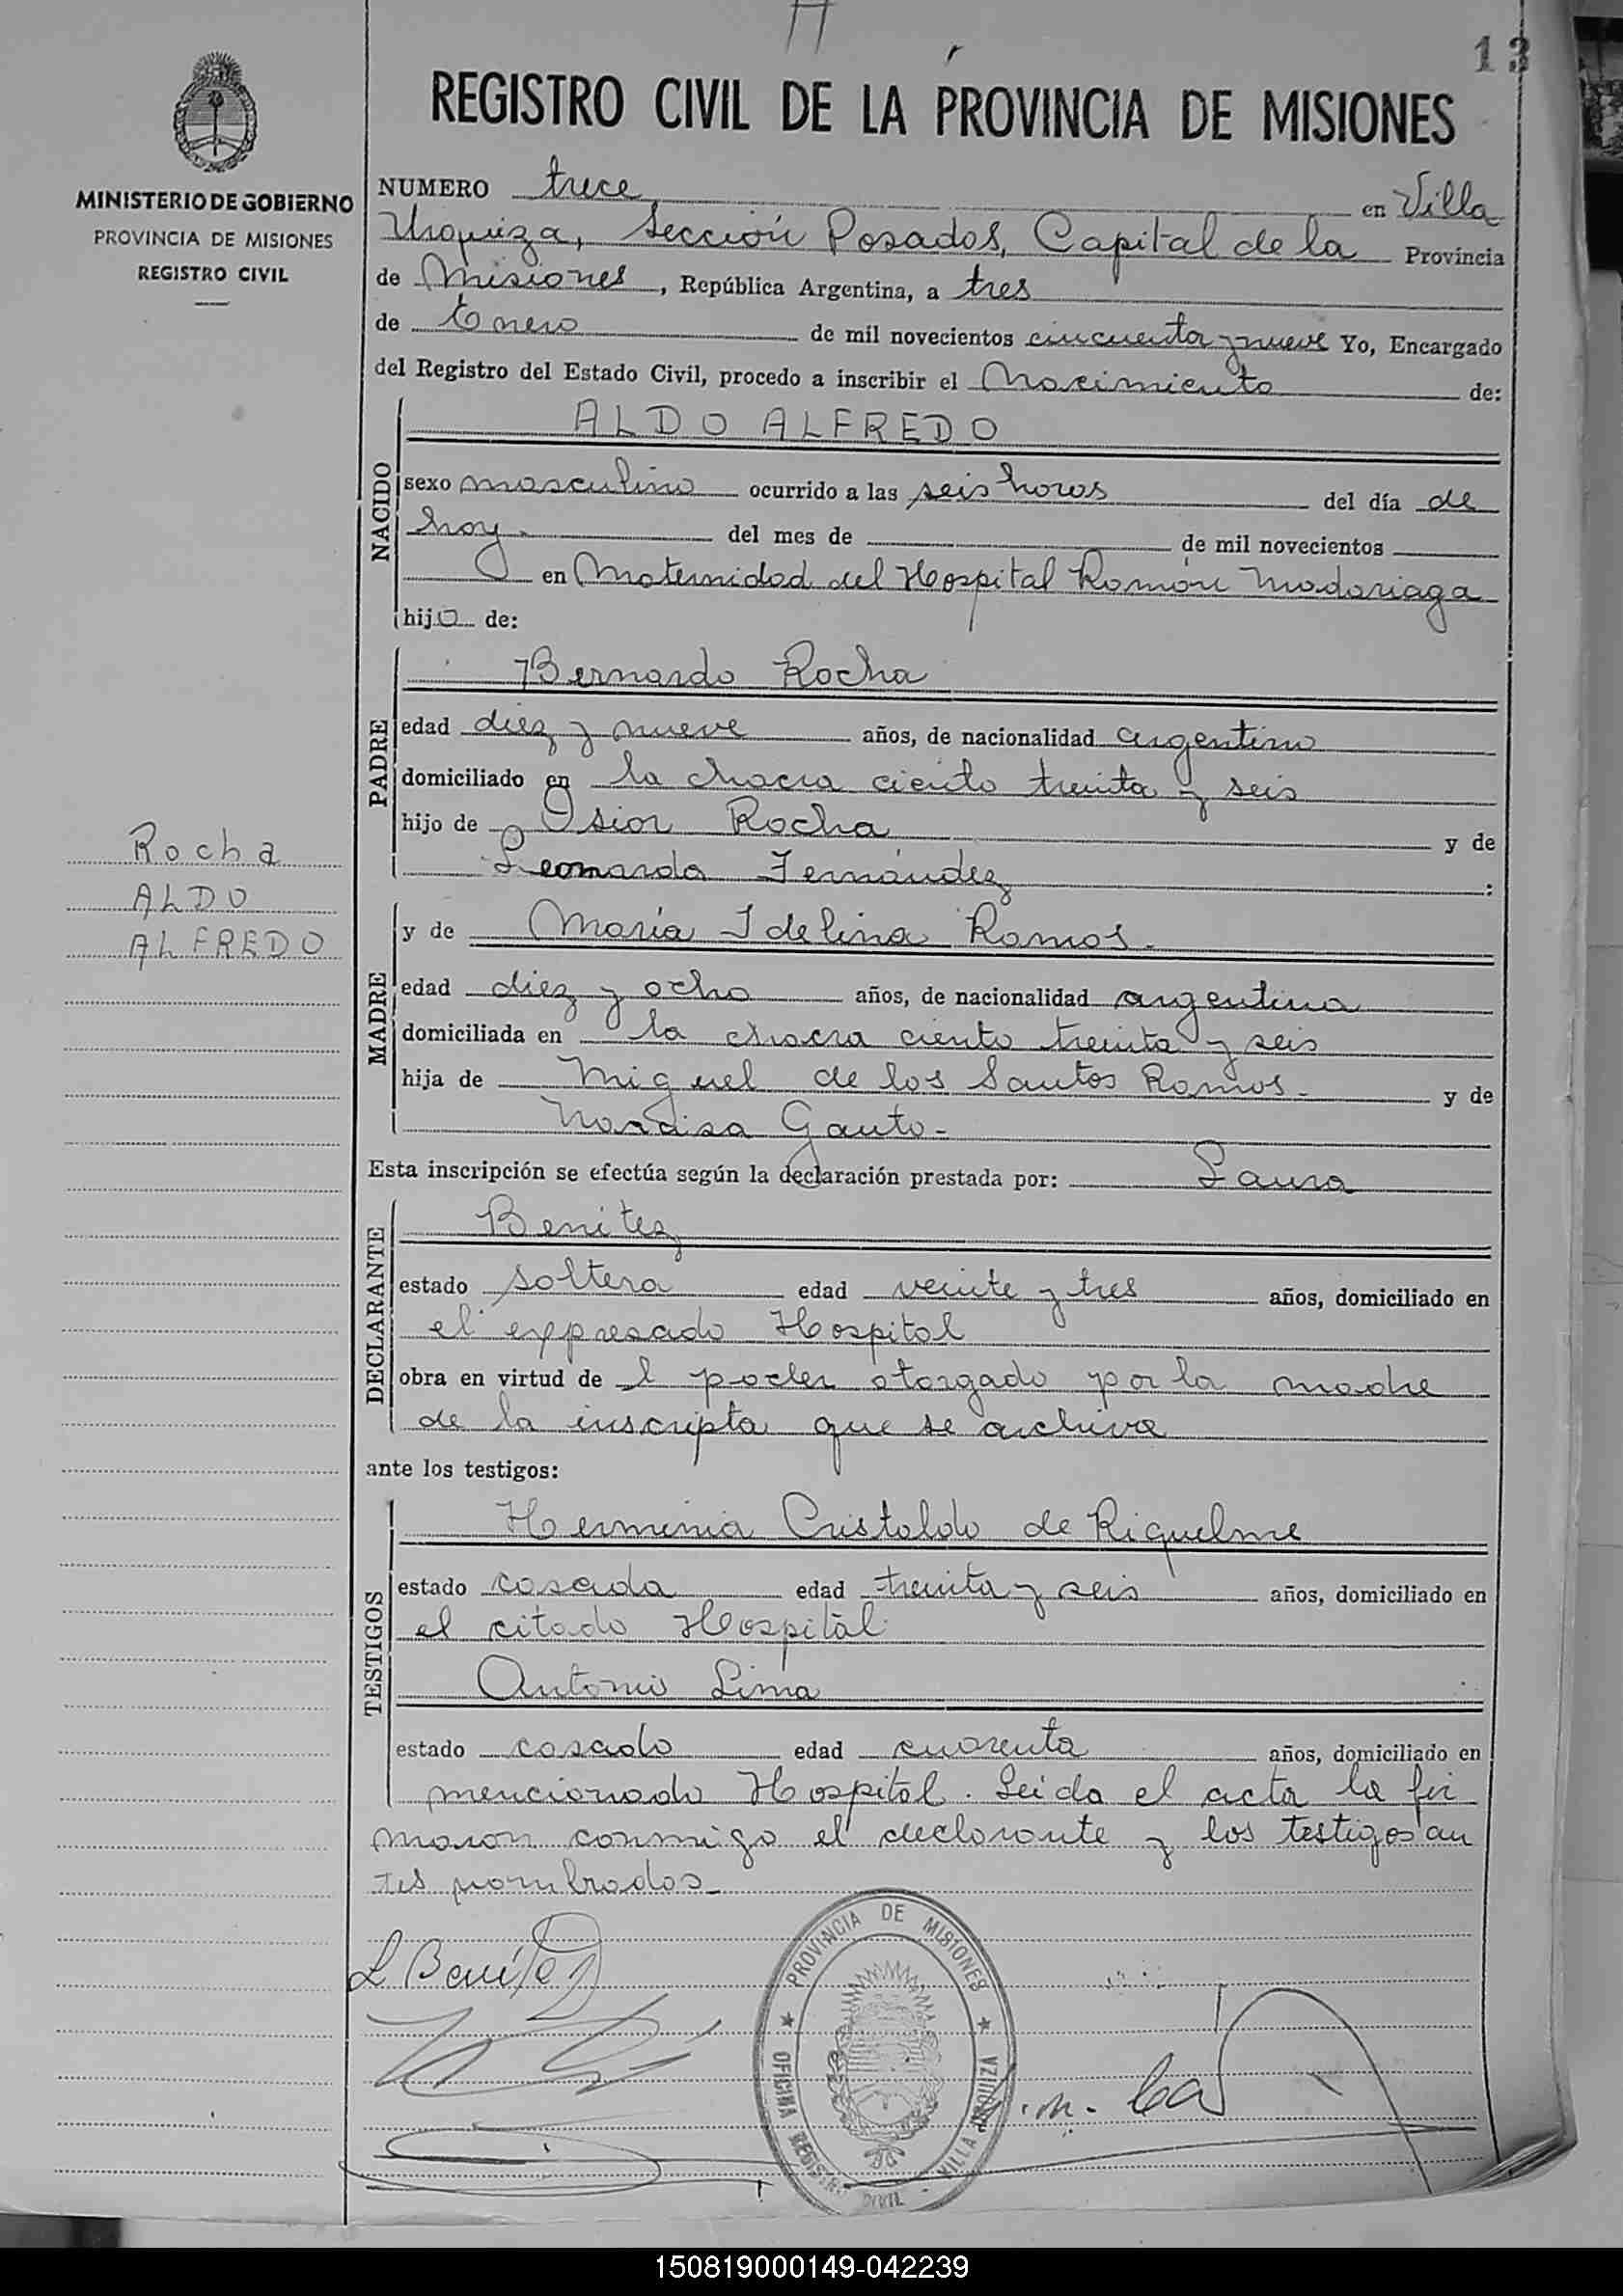 13
REGISTRO CIVIL DE LA PROVINCIA DE MISIONES
MINISTERIO DE GOBIERNO
PROVINCIA DE MISIONES
REGISTRO CIVIL
NUMERO trece en Villa
Urquiza, Sección Posadas, Capital de la Provincia
de Misiones, República Argentina, a tres
de Enero de mil novecientos cincuenta y nueve Yo, Encargado
del Registro del Estado Civil, procedo a inscribir el Nacimiento de:
NACIDO
ALDO ALFREDO
sexo masculino ocurrido a las seis horas del día de
hoy. del mes de de mil novecientos
en Maternidad del Hospital Ramón Madariaga
hijo de:
PADRE
Bernardo Rocha
edad diez y nueve años, de nacionalidad argentino
domiciliado en la chacra ciento treinta y seis
hijo de Rocha y de
Leonarda Fernández :
Rocha
ALDO
ALFREDO
MADRE
y de María Idelina Ramos.
edad diez y ocho años, de nacionalidad argentina
domiciliada en la chacra ciento treinta y seis
hija de Miguel de los Santos Ramos - y de
Gauto -
Esta inscripción se efectúa según la declaración prestada por: Laura
DECLARANTE
Benitez
estado soltera edad veinte y tres años, domiciliado en
el expresado Hospital
obra en virtud de l poder otorgado por la madre
de la inscripta que se archiva
ante los testigos:
TESTIGOS
Herminia Cristaldo de Riquelme
estado casada edad treinta y seis años, domiciliado en
el citado Hospital
Antonio Lima
estado casado edad cuarenta años, domiciliado en
mencionado Hospital. Leida el acta la fir
maron conmigo el declarante y los testigos an
tes nombrados -
L Benitez
PROVINCIA DE MISIONES
OFICINA REGIST. CIVIL - VILLA URQUIZA
150819000149-042239